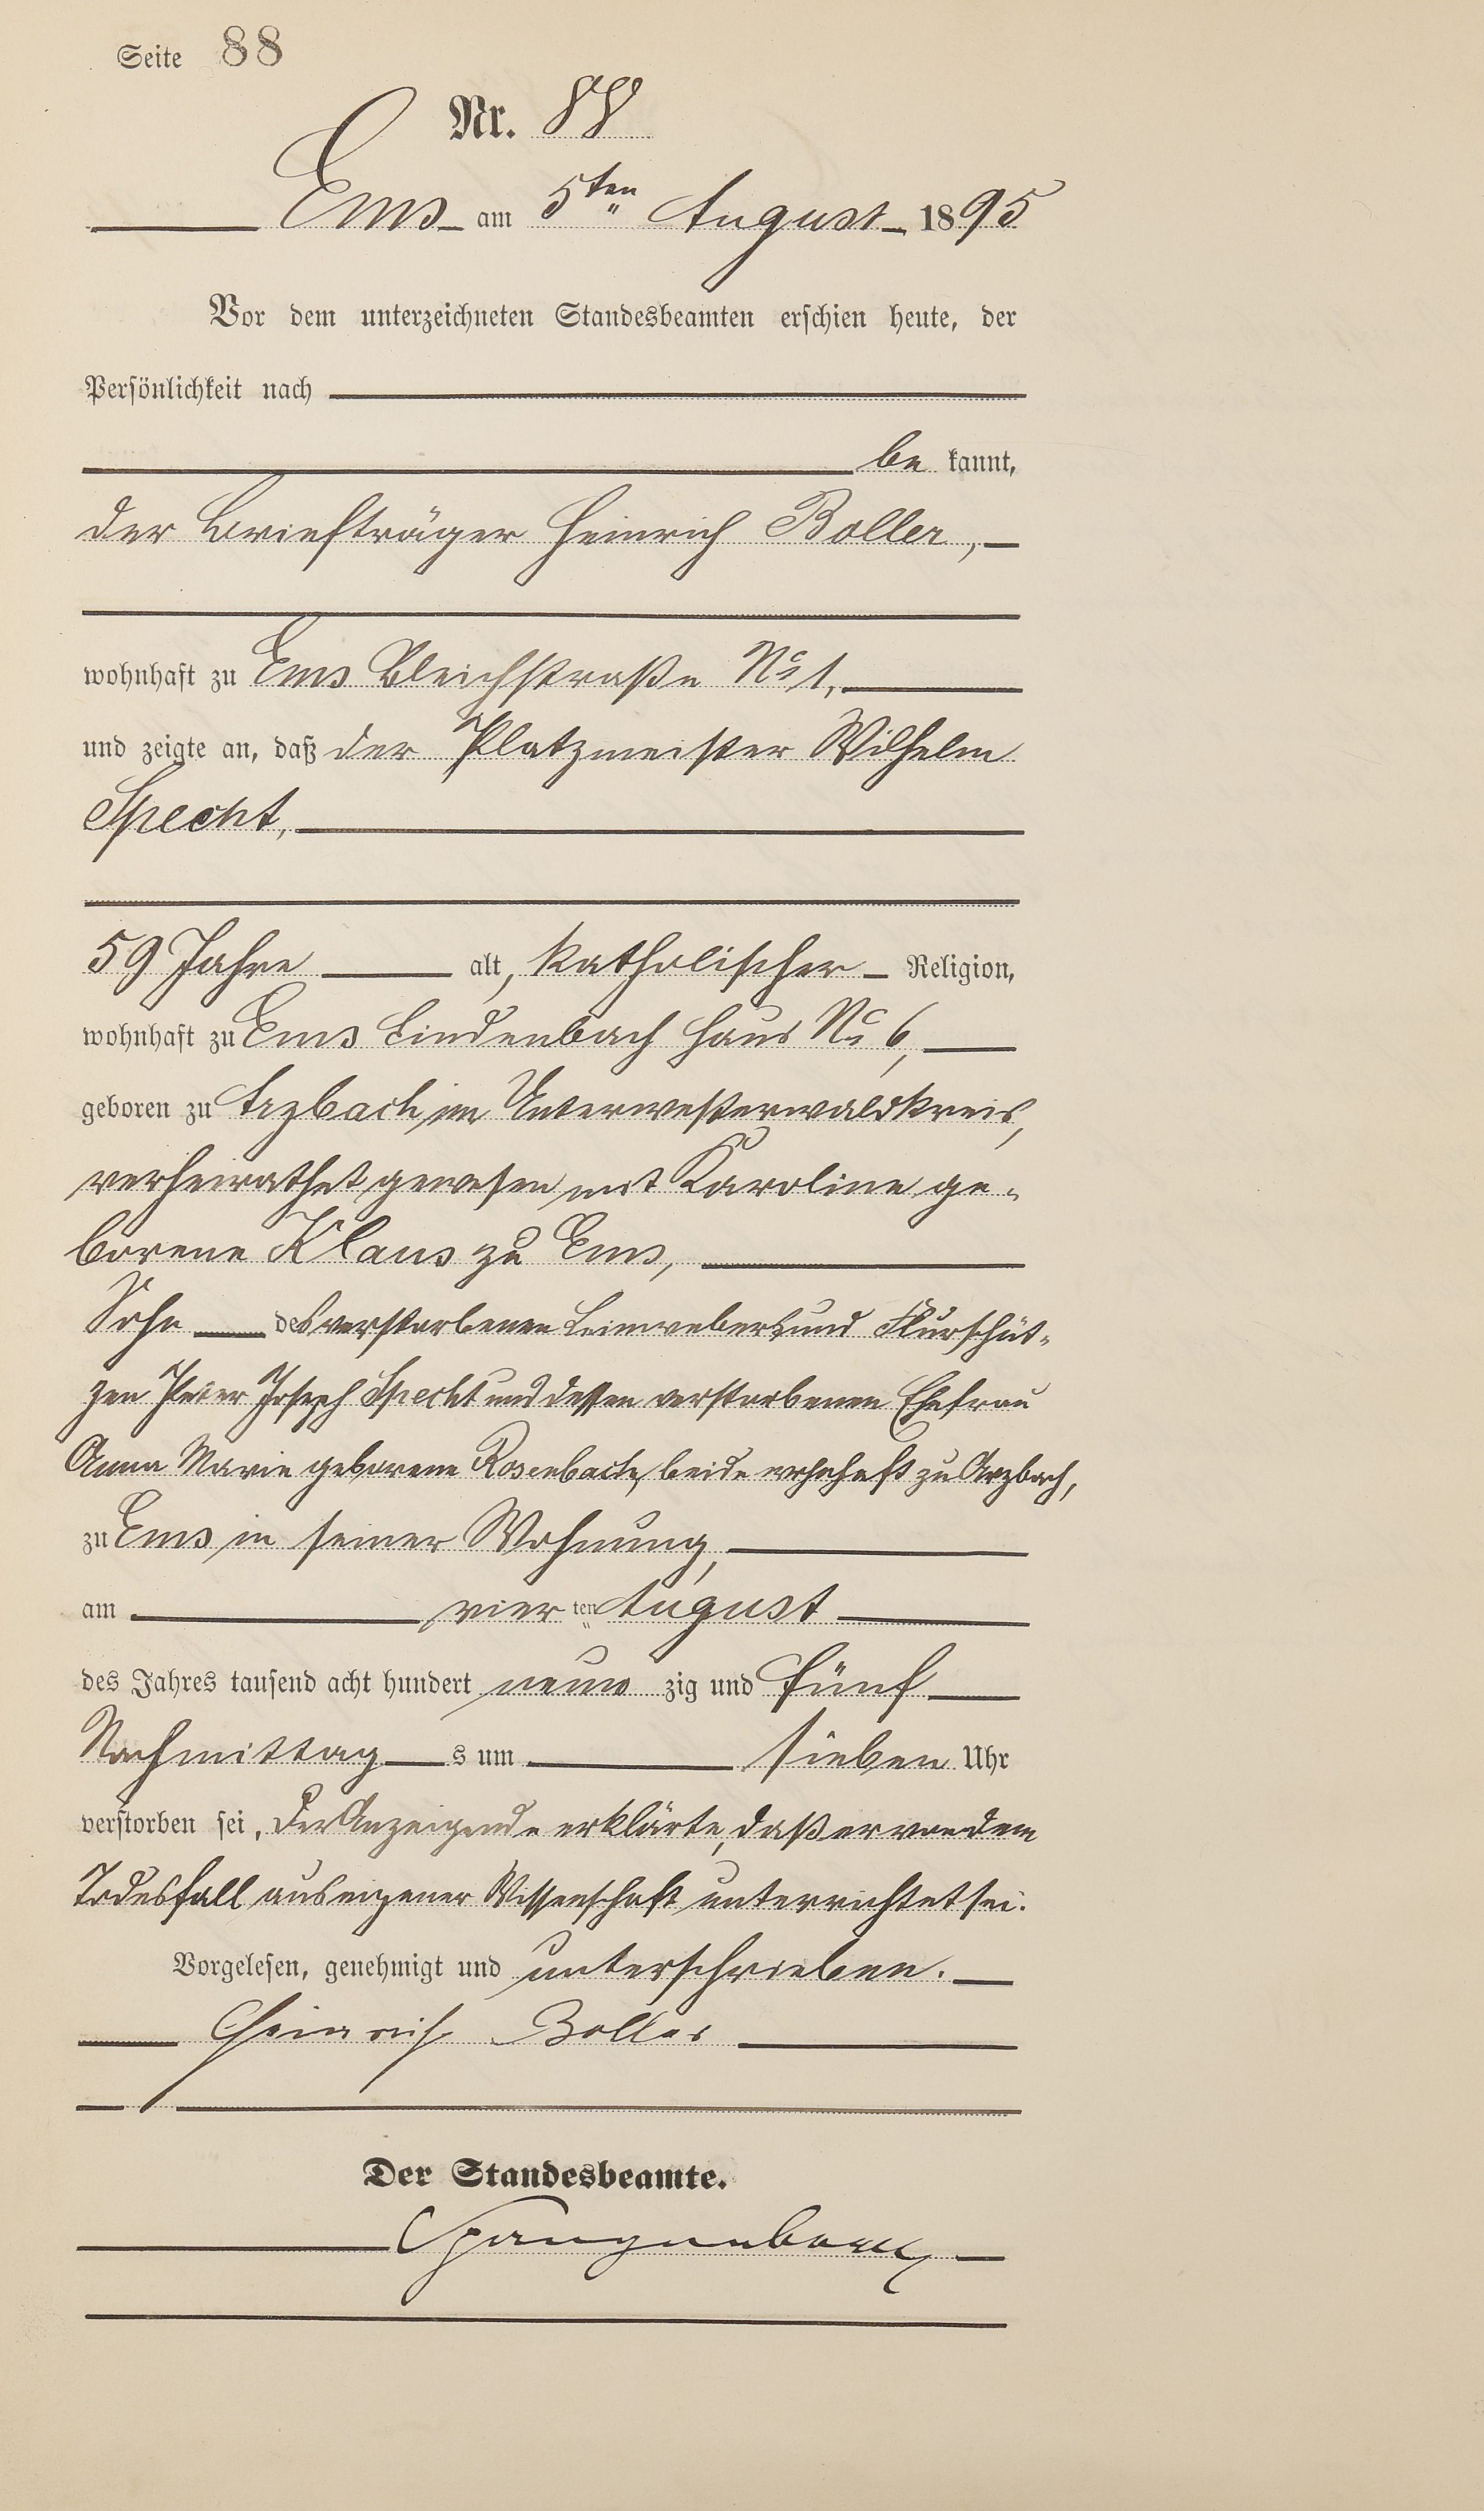 Seite 88
Nr. 88
Ems am 5ten August 1895
Vor dem unterzeichneten Standesbeamten erschien heute, der
Persönlichkeit nach
be kannt,
der Briefträger Heinrich Boller,
wohnhaft zu Ems Bleichstraße No 1,
und zeigte an, daß der Platzmeister Wilhelm
Specht,
59 Jahre alt, katholischer Religion,
wohnhaft zu Ems Lindenbach Haus No 6,
geboren zu Arzbach im Unterwesterwaldkreis,
verheirathet gewesen mit Karoline ge-
borene Klaus zu Ems,
Sohn des verstorbenen Leinwebers und Flurschüt-
zen Peter Joseph Specht und dessen verstorbenen Ehefrau
Anna Marie geborene Rosenbach, beide wohnhaft zu Arzbach,
zu Ems in seiner Wohnung,
am vier ten August
des Jahres tausend acht hundert neun zig und fünf
Nachmittag s um sieben Uhr
verstorben sei. Der Anzeigende erklärte, daß er von dem
Todesfall aus eigener Wissenschaft unterrichtet sei.
Vorgelesen, genehmigt und unterschrieben.
Heinrich Boller
Der Standesbeamte.